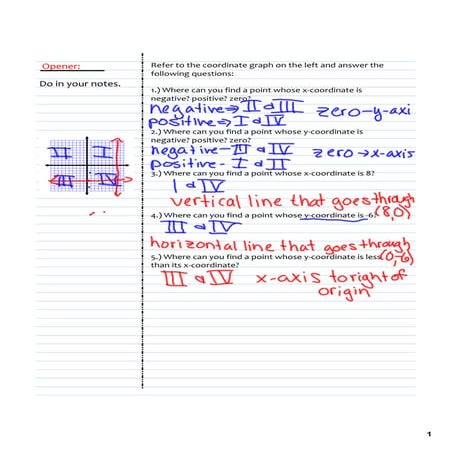 Opener:
Do in your notes.
II I
III IV
Refer to the coordinate graph on the left and answer the
following questions:
1.) Where can you find a point whose x-coordinate is
negative? positive? zero?
negative⇒ II & III zero-y-axi
positive⇒ I & IV
2.) Where can you find a point whose y-coordinate is
negative? positive? zero?
negative-III & IV zero→x-axis
positive - I & II
3.) Where can you find a point whose x-coordinate is 8?
I & IV
vertical line that goes through
(8,0)
4.) Where can you find a point whose y-coordinate is -6?
III & IV
horizontal line that goes through
(0,-6)
5.) Where can you find a point whose y-coordinate is less
than its x-coordinate?
III & IV x-axis to right of
origin
1